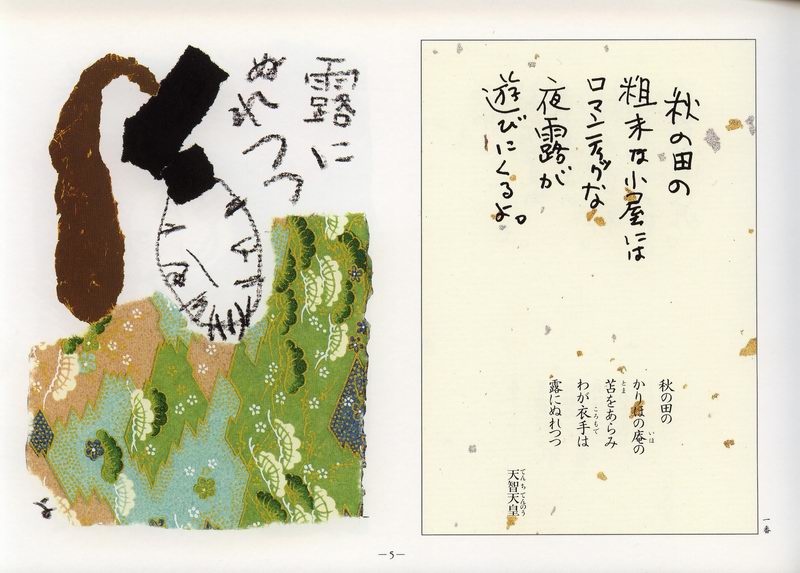 秋の田の
粗末な小屋には
ロマンティックな
夜露が
遊びにくるよ。
秋の田の
かりほの庵の
いほ
苫をあらみ
とま
わが衣手は
ころもで
露にぬれつつ
天智天皇
てんちてんのう
一番
露に
ぬれ
つつ
―5―